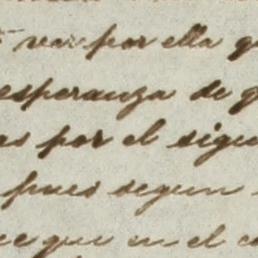 var por ella
esperanza de
por el
pues segun
que en el